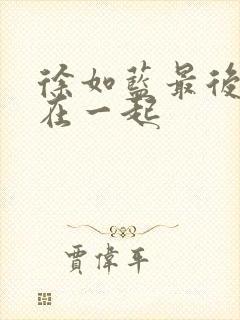 徐如藍最後
在一起
賈偉平